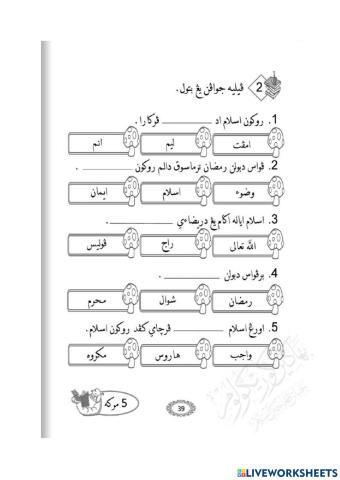 2 ڤيليه جواڤن يڠ بتول.
1. روكون اسلام اد ________ ڤركارا.
امڤت ليم انم
2. ڤواس دبولن رمضان ترماسوق دالم روكون ________ .
وضوء اسلام ايمان
3. اسلام اياله اݢام يڠ دريضاءي ________ .
الله تعالى راج ڤوليس
4. برڤواس دبولن ________ .
رمضان شوال محرم
5. اورڠ اسلام ________ ڤرچاي كڤد روكون اسلام.
واجب هاروس مكروه
5 مركه
39
LIVEWORKSHEETS